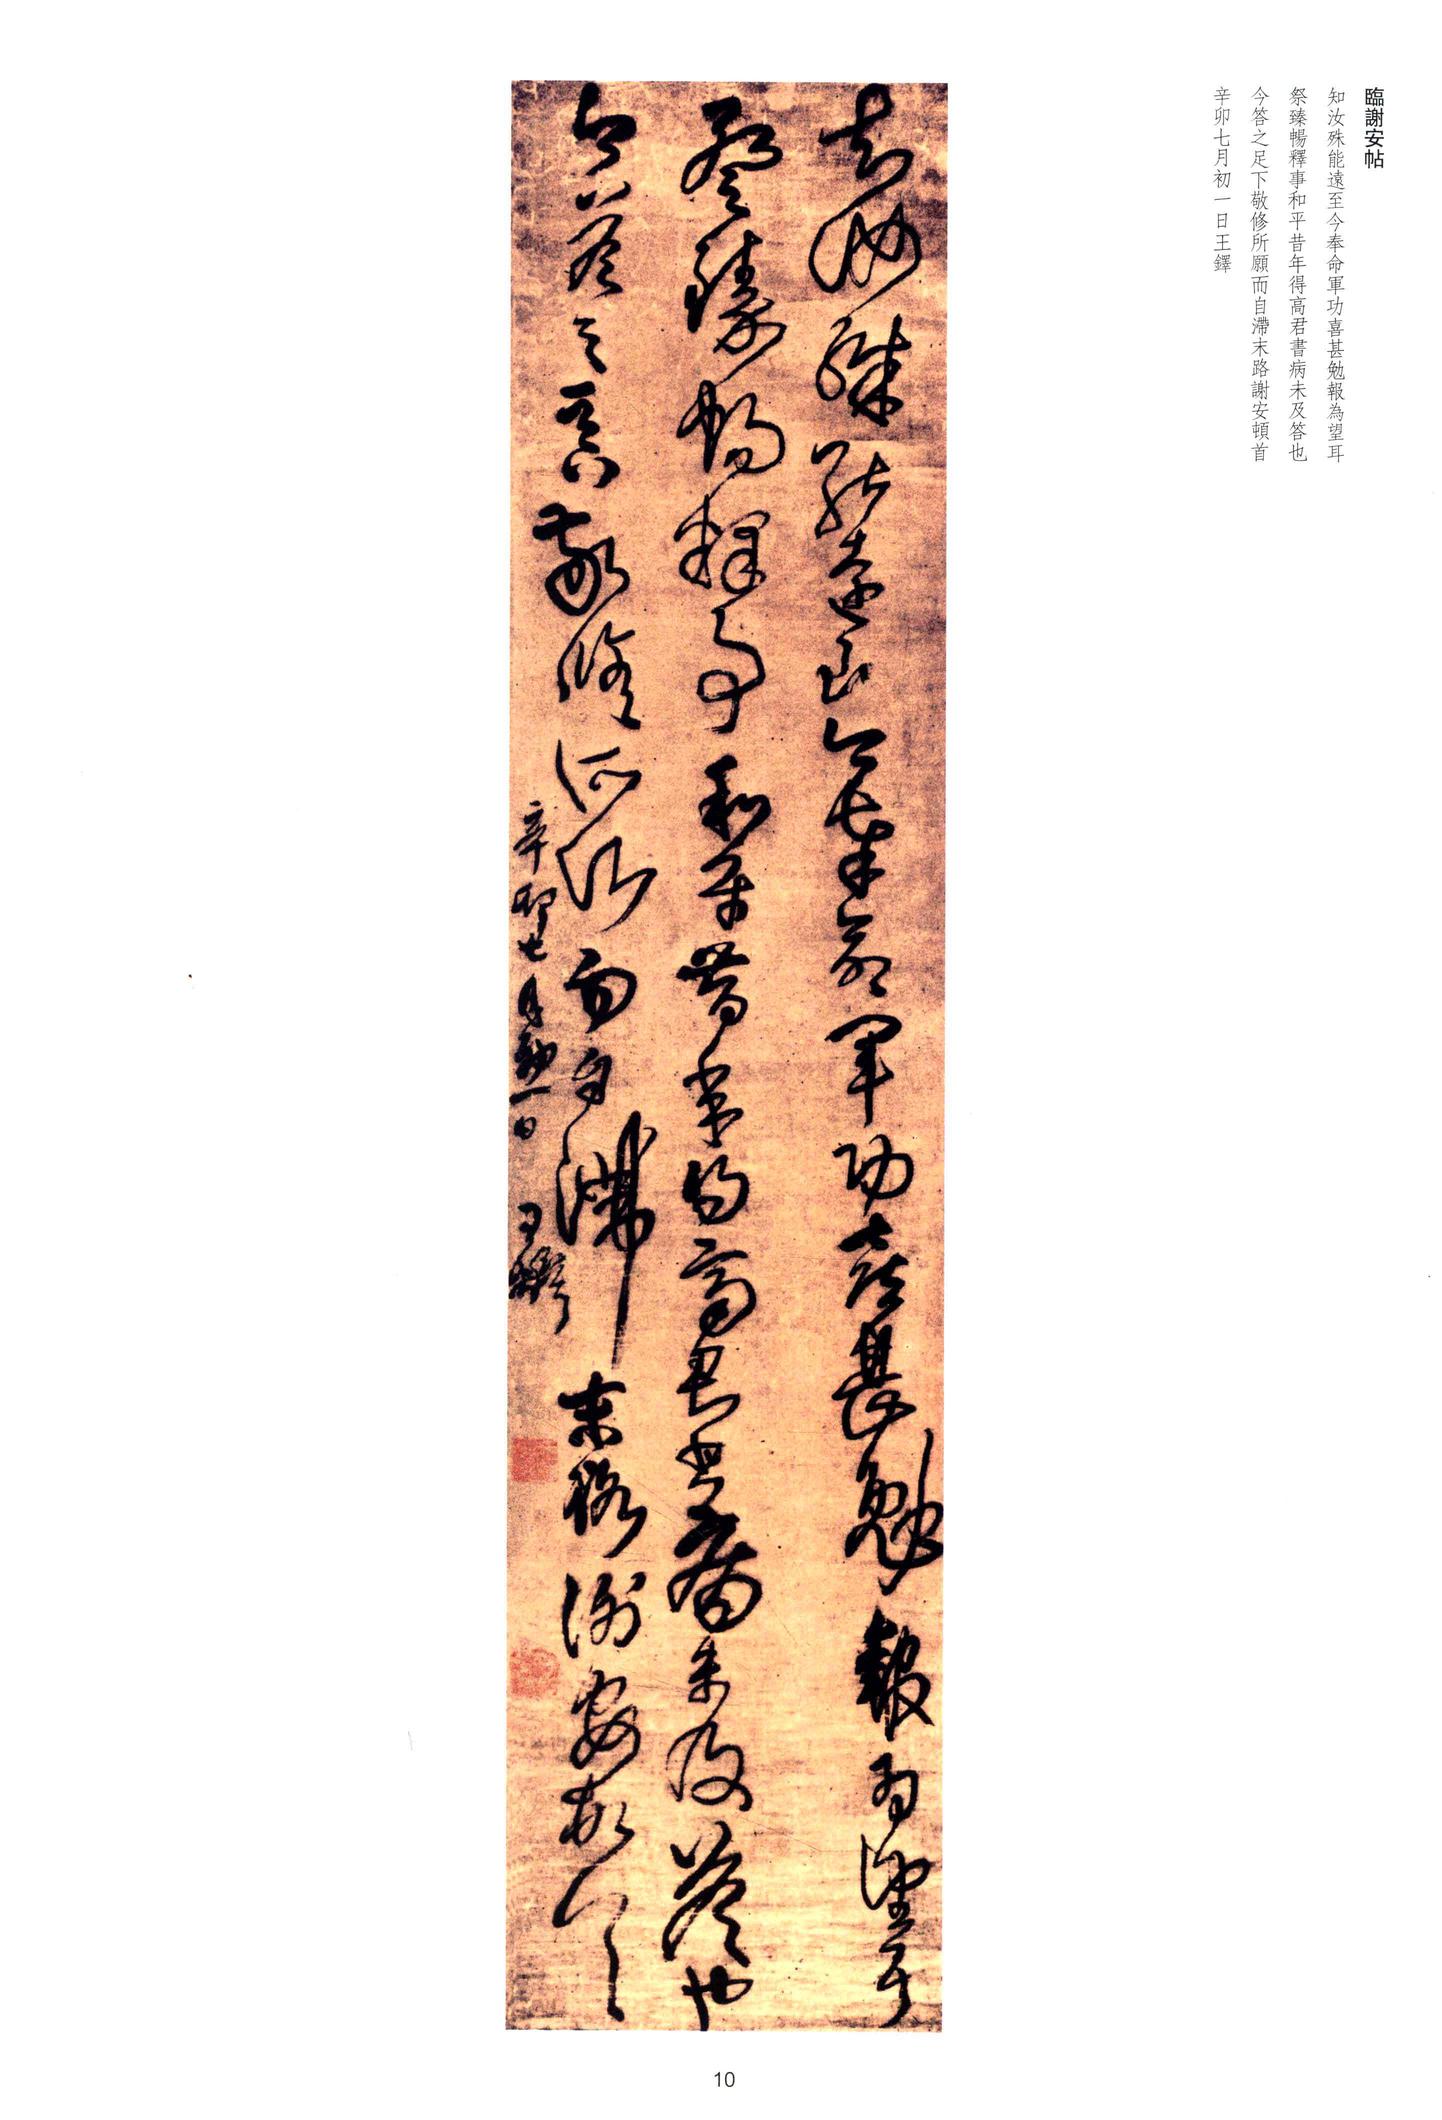 臨謝安帖
知汝殊能遠至今奉命軍功喜甚勉報為望耳
祭臻暢釋事和平昔年得高君書病未及答也
今答之足下敬修所願而自滯末路謝安頓首
辛卯七月初一日王鐸
知汝殊能遠至今奉命軍功喜甚勉報為望耳
臻暢釋事和平昔得高君書病未及答也
今答之足下敬修所願而自滯末路謝安頓首
辛卯七月初一日王鐸
10